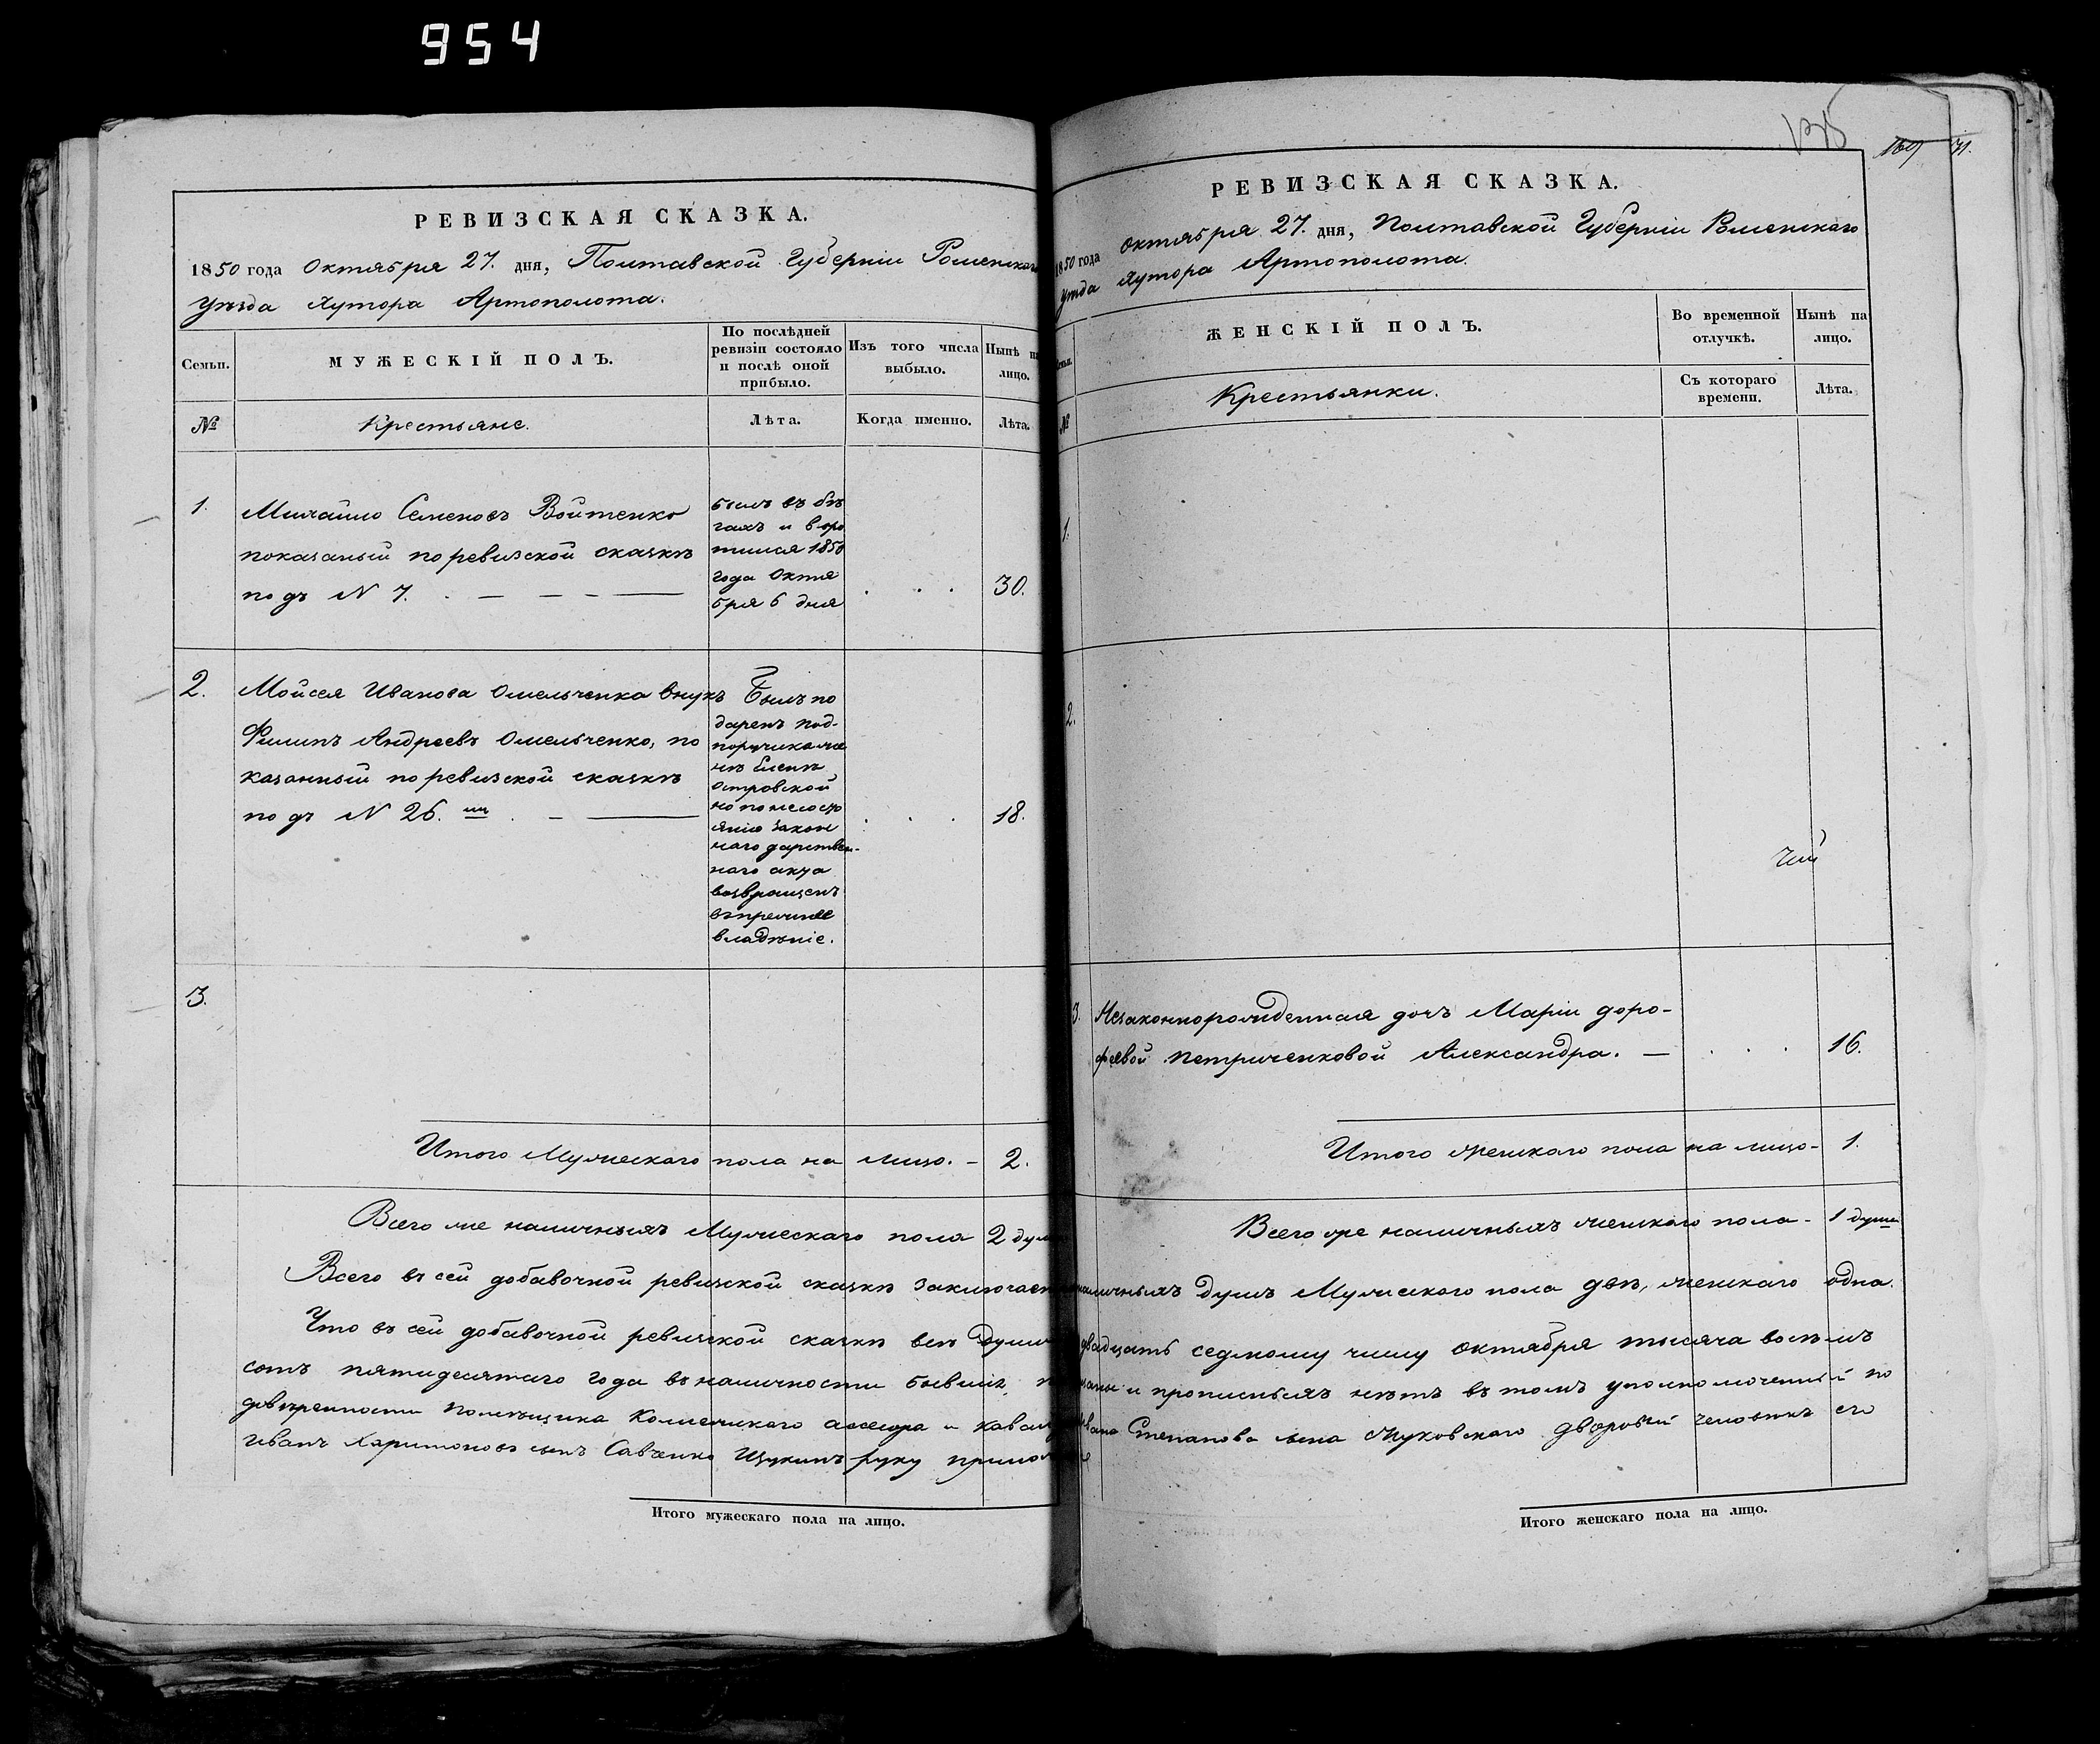 954
РЕВИЗСКАЯ СКАЗКА.
1850 года Октября 27. дня, Полтавской Губерніи Роменскаго
уѣзда Хутора Артополота.
Семьи.
МУЖЕСКІЙ ПОЛЪ.
По послѣдней
ревизіи состояло
и послѣ оной
прибыло.
Изъ того числа
выбыло.
Нынѣ на
лицо.
№
Крестьяне.
Лѣта.
Когда именно.
Лѣта.
1.
Михайло Семеновъ Войтенко
показаный по ревизской сказкѣ
подъ N 7.
былъ въ бѣ
гахъ и воро
тился 1850
года Октя
бря 6 дня
30.
2.
Мойсея Иванова Омельченка внукъ
Филипъ Андреевъ Омельченко, по
казанный по ревизской сказкѣ
подъ N 26.
Былъ по
даренъ под-
поручикше
Еленѣ
Островской
но по несосто
янію закон
наго дарствен-
наго акта
возвращенъ
въ прежнее
владѣніе.
18.
3.
Итого Мужескаго пола на лицо. - 2.
Всего же наличныхъ Мужескаго пола 2 души
РЕВИЗСКАЯ СКАЗКА.
1850 года Октября 27. дня, Полтавской Губерніи Роменскаго
уѣзда Хутора Артополота.
ЖЕНСКІЙ ПОЛЪ.
Во временной
отлучкѣ.
Нынѣ на
лицо.
№
Крестьянки.
Съ котораго
времени.
Лѣта.
1.
2.
3.
Незаконнорожденная дочъ Маріи доро-
феевой Петриченковой Александра. —
16.
Итого женскаго пола на лицо- 1.
Всего же наличныхъ женскаго пола- 1 душа
Всего въ сей добавочной ревизской сказкѣ заключается наличныхъ душъ Мужескаго пола двѣ, женскаго одна.
Что въ сей добавочной ревизской сказкѣ всѣ души двадцать седмому числу октября тысяча восемъ
сотъ пятидесятаго года въ наличности бывшіе и прописныхъ нѣтъ въ томъ уполномоченный по
довѣренности помѣщика Колежскаго асесора и кавалера Степанова сына дворовый человѣкъ его
Иванъ Харитоновъ сынъ Савченко Щукинъ руку приложилъ
Итого мужескаго пола на лицо.
Итого женскаго пола на лицо.